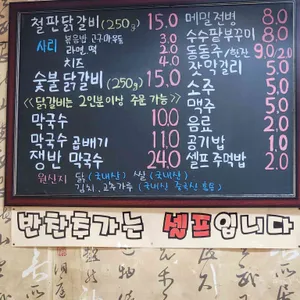 철판닭갈비(250g) 15.0
사리 볶음밥 고구마우동 3.0
라면.떡 2.0
치즈 4.0
숯불닭갈비(250g) 15.0
<<닭갈비는 2인분이상 주문 가능>>
막국수 10.0
막국수 곱배기 11.0
쟁반 막국수 24.0
원산지 닭(국내산) 쌀(국내산)
김치, 고추가루(국내산 중국산 혼용)
메밀전병 8.0
수수팥부꾸미 8.0
동동주/한잔 9.0/2.0
잣막걸리 5.0
소주 5.0
맥주 5.0
음료 2.0
공기밥 1.0
셀프주먹밥 2.0
반찬추가는 셀프입니다